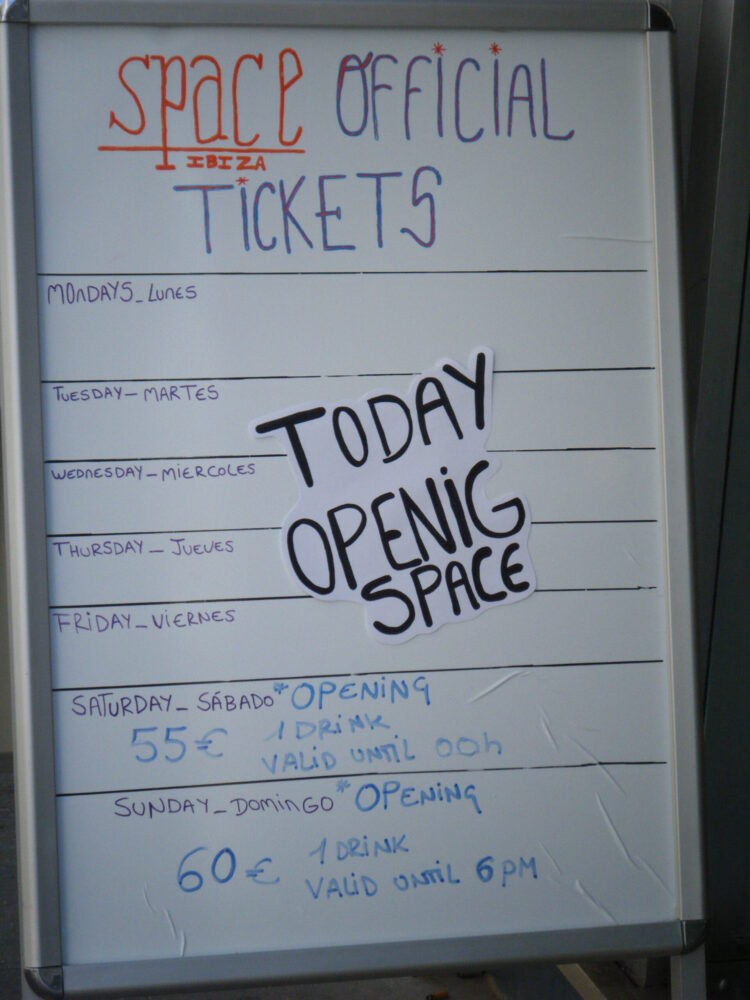 Space OFFICIAL
IBIZA
TICKETS
MONDAYS_LUNES
TUESDAY_MARTES
WEDNESDAY_MIERCOLES
THURSDAY_JUEVES
FRIDAY_VIERNES
TODAY
OPENIG
SPACE
SATURDAY_SÁBADO *OPENING
55€ 1 DRINK
VALID UNTIL 00h
SUNDAY_DOMINGO *OPENING
60€ 1 DRINK
VALID UNTIL 6PM